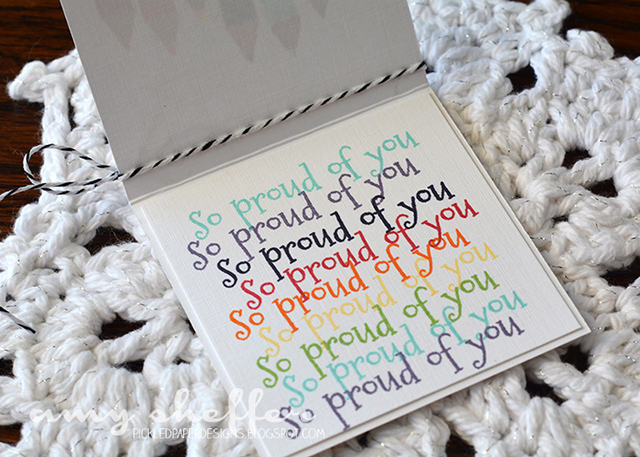 so proud of you
so proud of you
so proud of you
so proud of you
so proud of you
so proud of you
so proud of you
so proud of you
so proud of you
amy sheffer
PICKLEDPAPERDESIGNS.BLOGSPOT.COM